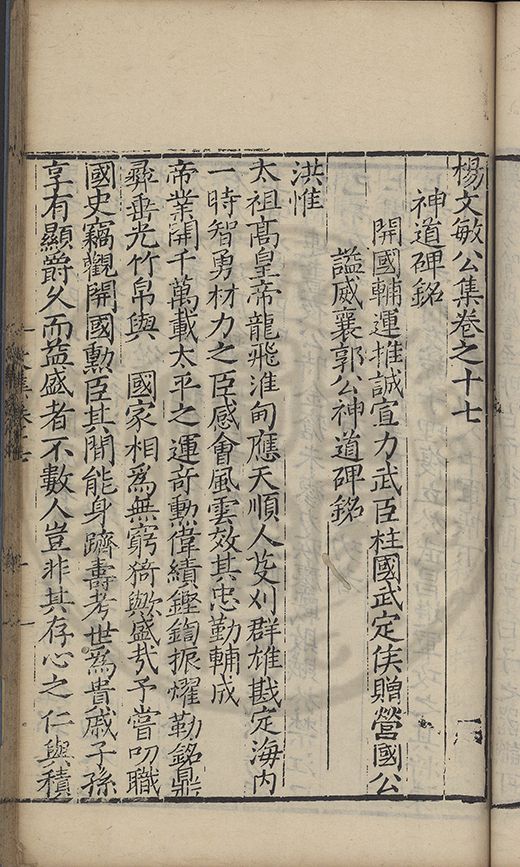 楊文敏公集卷之十七
神道碑銘
開國輔運推誠宣力武臣柱國武定侯贈營國公
謚威襄郭公神道碑銘
洪惟
太祖髙皇帝龍飛淮甸應天順人芟刈群雄戡定海内
一時智勇材力之臣感會風雲效其忠勤輔成
帝業開千萬載太平之運竒勲偉績鏗鍧振燿勒銘鼎
彞垂光竹帛與　國家相爲無窮猗歟盛㢤予嘗叨職
國史竊觀開國勲臣其間能身躋壽考世爲貴戚子孫
享有顯爵久而益盛者不數人豈非其存心之仁與積